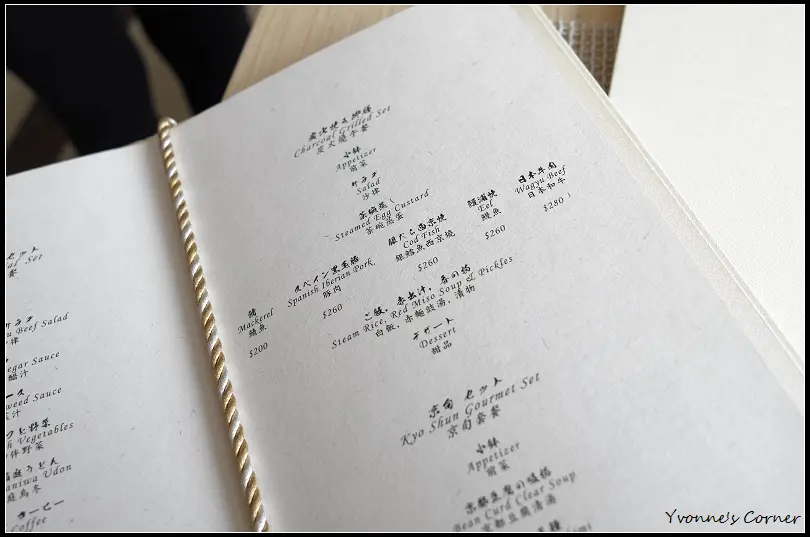 セット
Set
餐
サラダ
Beef Salad
律
egar Sauce
醋汁
ース
weed Sauce
汁
野菜
Vegetables
野菜
庭うどん
aniwa Udon
庭烏冬
コーヒー
Coffee
Charcoal Grilled Set
炭火燒午餐
小鉢
Appetizer
前菜
サラダ
Salad
沙律
茶碗蒸し
Steamed Egg Custard
茶碗蒸蛋
鯖
Mackerel
鯖魚
$200
スペイン黒毛豚
Spanish Iberian Pork
豚肉
$260
銀だら西京焼
Cod Fish
銀鱈魚西京燒
$260
鰻蒲焼
Eel
鰻魚
$260
日本牛肉
Wagyu Beef
日本和牛
$280
ご飯、赤出汁、香の物
Steam Rice, Red Miso Soup & Pickles
白飯, 赤麵豉湯, 漬物
デザート
Dessert
甜品
京旬 セット
Kyo Shun Gourmet Set
京旬套餐
小鉢
Appetizer
前菜
京都豆腐の吸物
Bean Curd Clear Soup
京都豆腐清湯
Yvonne's Corner